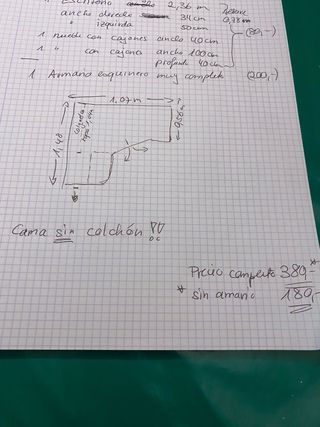 1 Escritorio 2,36 m
ancho derecho 31cm 0,73m
" izquierda 50cm
1 mueble con cajones ancho 40cm (180,-)
1 " con cajones ancho 100cm
profundo 40cm
1 Armario esquinero muy completo (200,-)
1.07m
1,48
0,56m
Cama sin colchón !!
Precio completo 380,-*
* sin amario 180,-